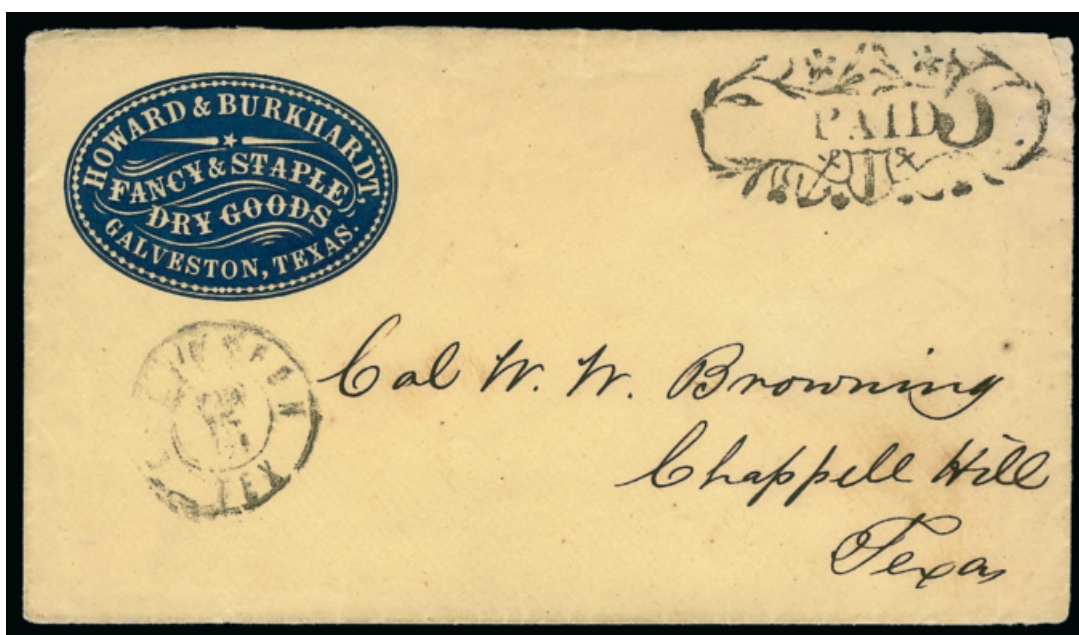 HOWARD & BURKHARDT,
FANCY & STAPLE
DRY GOODS
GALVESTON, TEXAS.
PAID
TEX
Col W. W. Browning
Chappell Hill
Texas